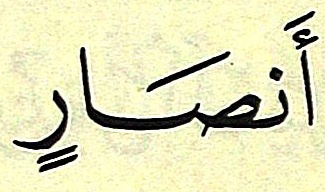 أَنصَارٍ